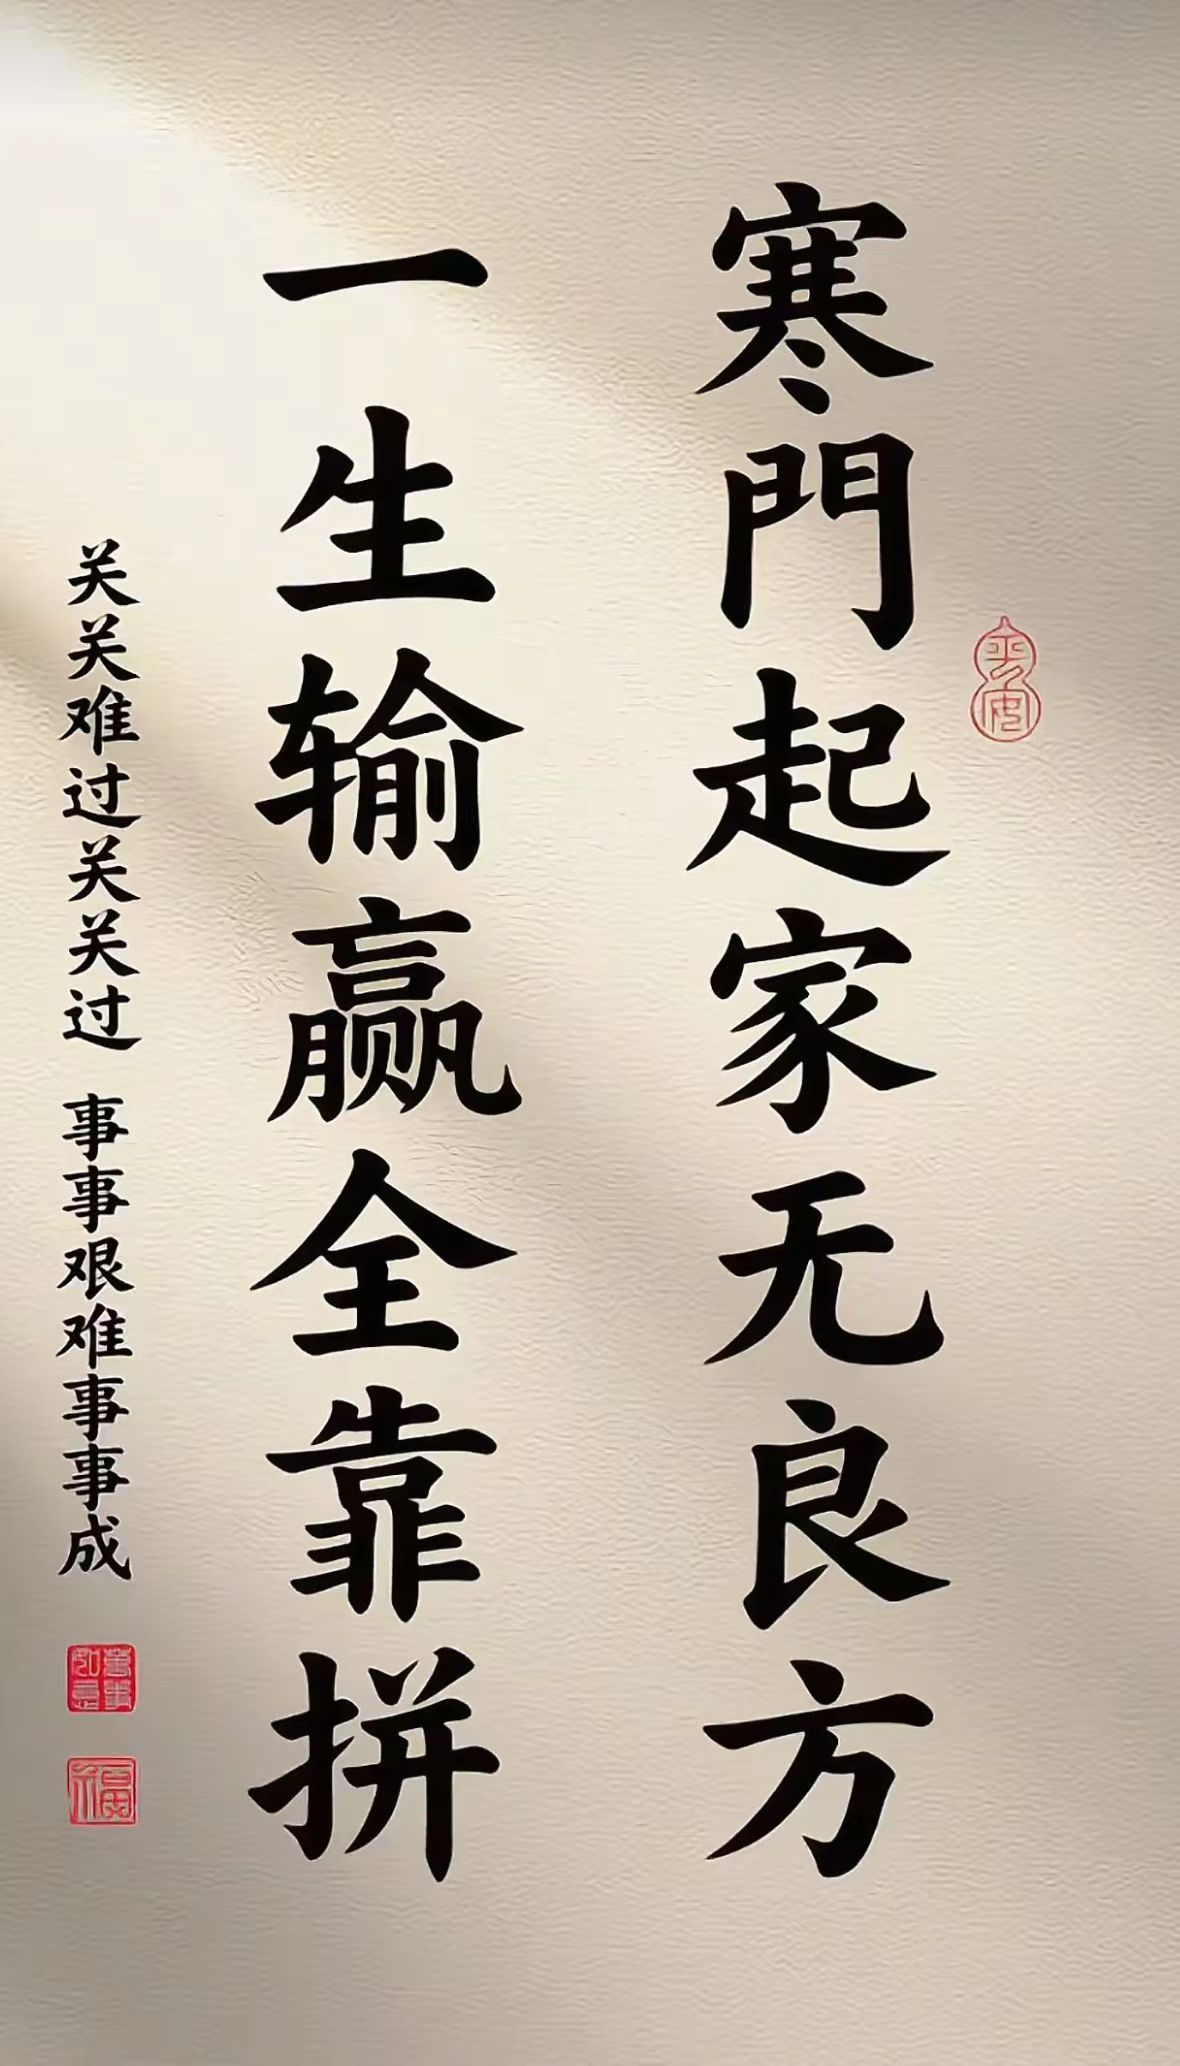 寒門起家无良方
平安
一生输赢全靠拼
关关难过关关过 事事艰难事事成
万事如意
福